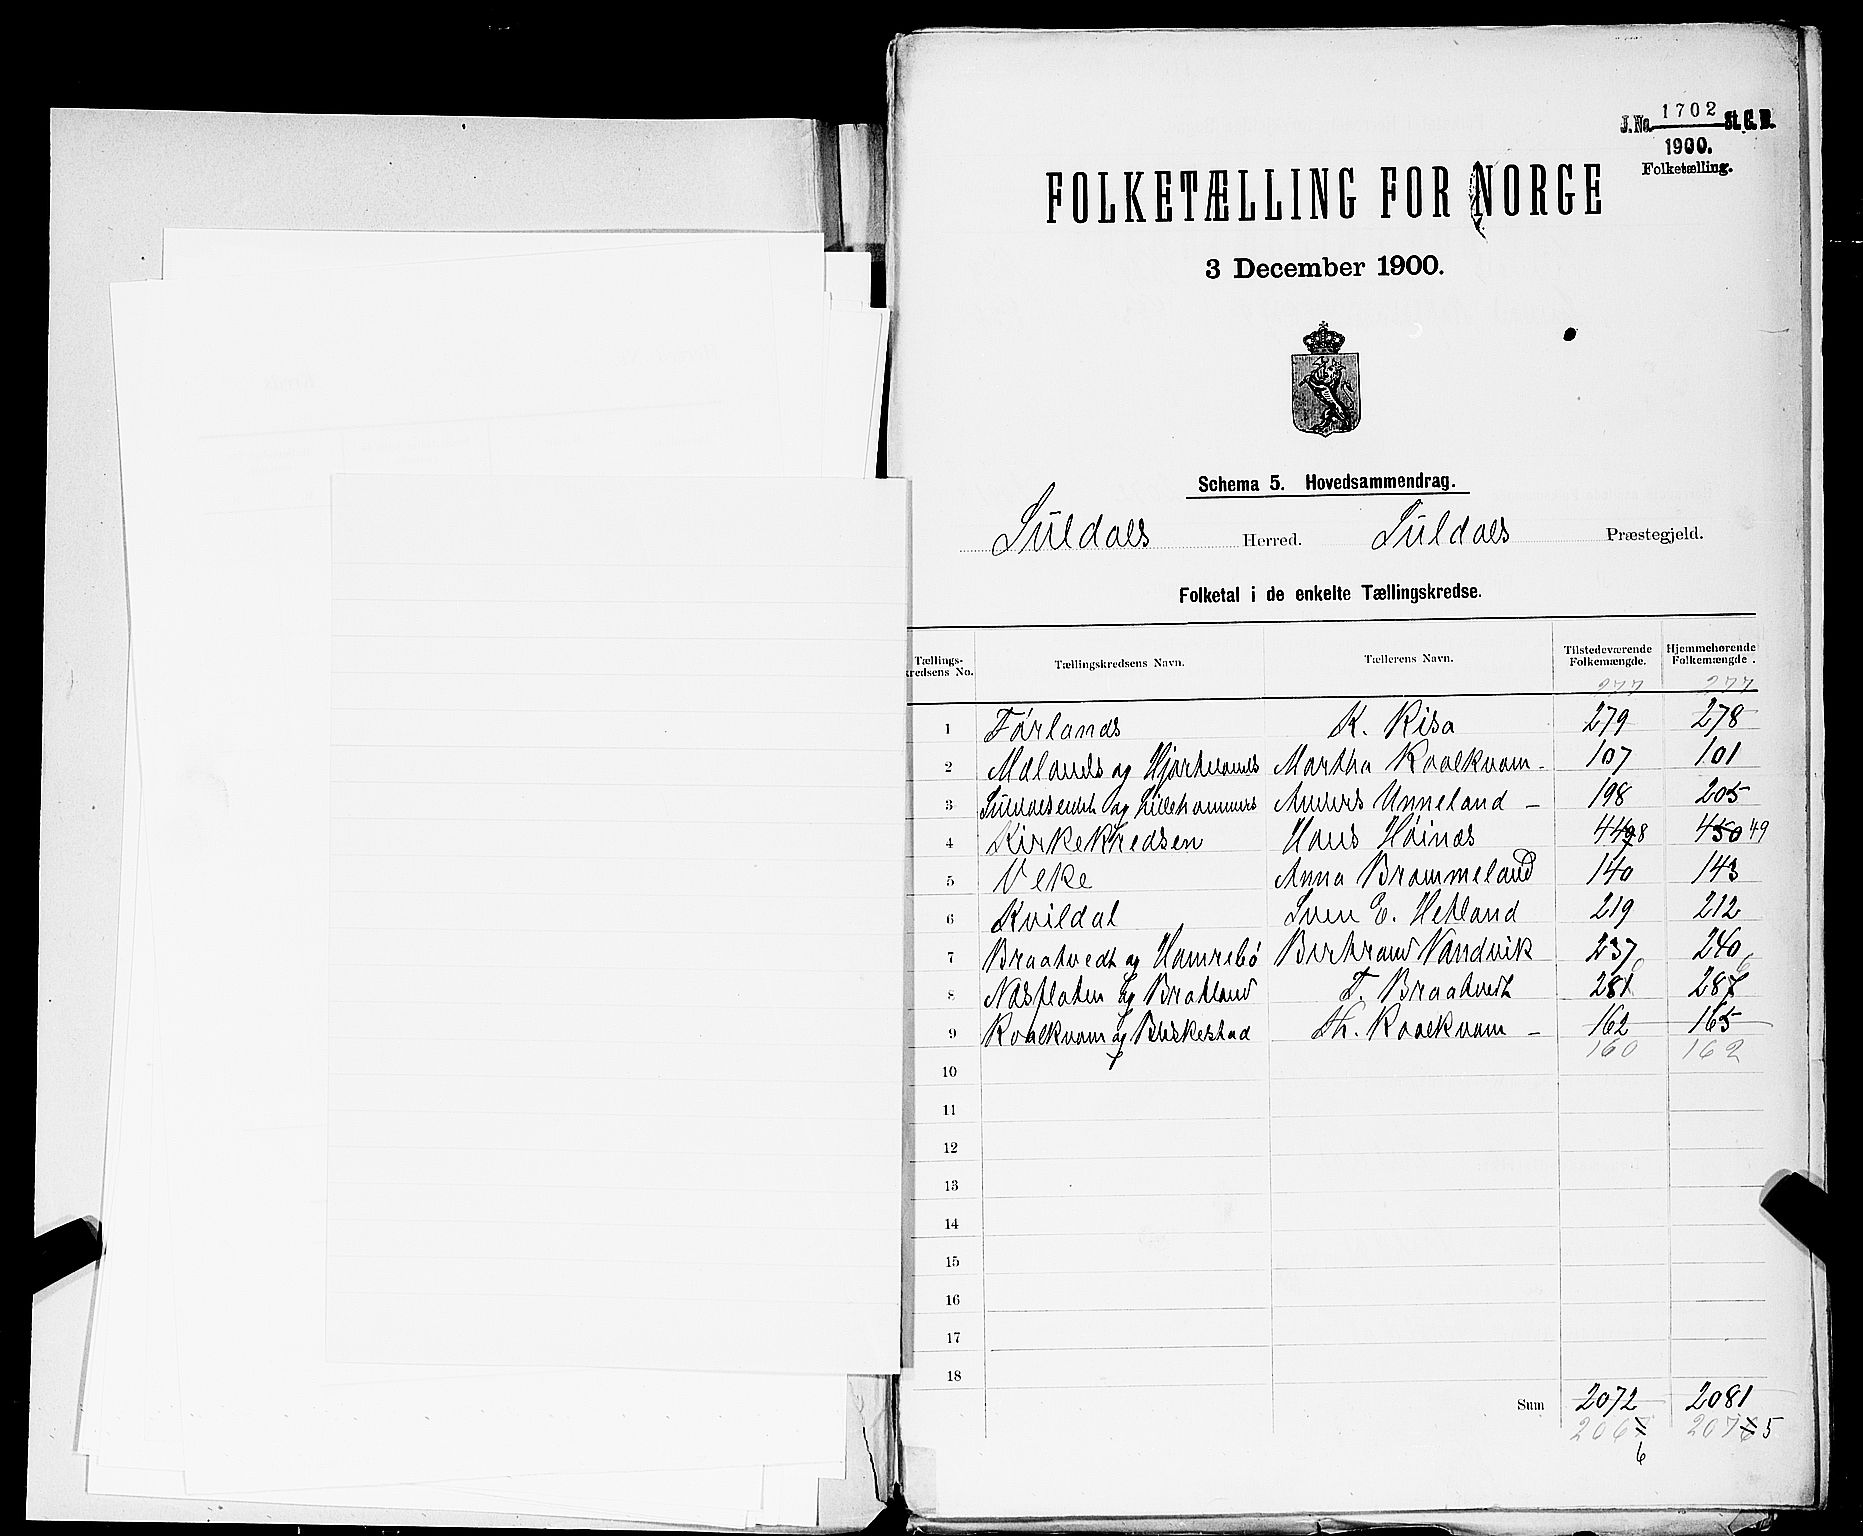 J. No. 1702 St. C. B.
1900.
Folketælling.
FOLKETÆLLING FOR NORGE
3 December 1900.
Schema 5. Hovedsammendrag.
Suldals Herred. Suldals Præstegjeld.
Folketal i de enkelte Tællingskredse.
Tællings- Tællingskredsens Navn. Tællerens Navn. Tilstedeværende Hjemmehørende
kredsens No. Folkemængde. Folkemængde.
277 277
1 Førlands K. Risa 279 278
2 Mælands og Hjortelands Martha Roalkvam 107 101
3 Suldalseidet og Lillehammers Anders Unneland 198 205
4 Kirkekredsen Hans Høinæs 4498 45049
5 Veke Anna Brommeland 140 143
6 Kvildal Sven E. Hetland 219 212
7 Braatvedt og Hamrebö Bertrand Vandvik 237 240
8 Næsflaten og Bratland T. Braatvedt 281 286
9 Roalkvam og Bleskestad Th. Roalkvam 162 165
160 162
10
11
12
13
14
15
16
17
18
Sum 2072 2081
206 207 5
6